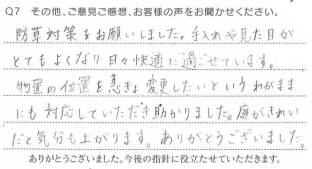 Q7 その他、ご意見ご感想、お客様の声をお聞かせください。
防草対策をお願いしました。手入れや見た目が
とてもよくなり日々快適に過ごせています。
物置の位置を急きょ変更したいというわがまま
にも対応していただき助かりました。庭がきれい
だと気分も上がります。ありがとうございました。
ありがとうございました。今後の指針に役立たせていただきます。